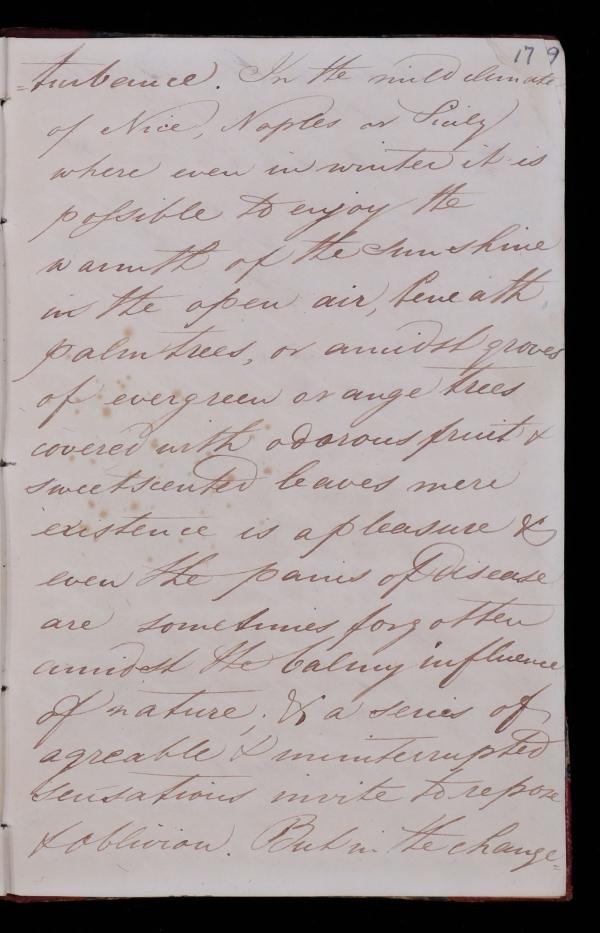 179
=turbance. In the mild climate
of Nice, Naples or Sicily
where even in winter it is
possible to enjoy the
warmth of the sunshine
in the open air, beneath
palm trees, or amidst groves
of evergreen orange trees
covered with odorous fruit &
sweetscented leaves mere
existence is a pleasure &
even the pains of disease
are sometimes forgotten
amidst the balmy influence
of nature; & a series of
agreable & uninterrupted
sensations invite to repose
& oblivion. But in the change=